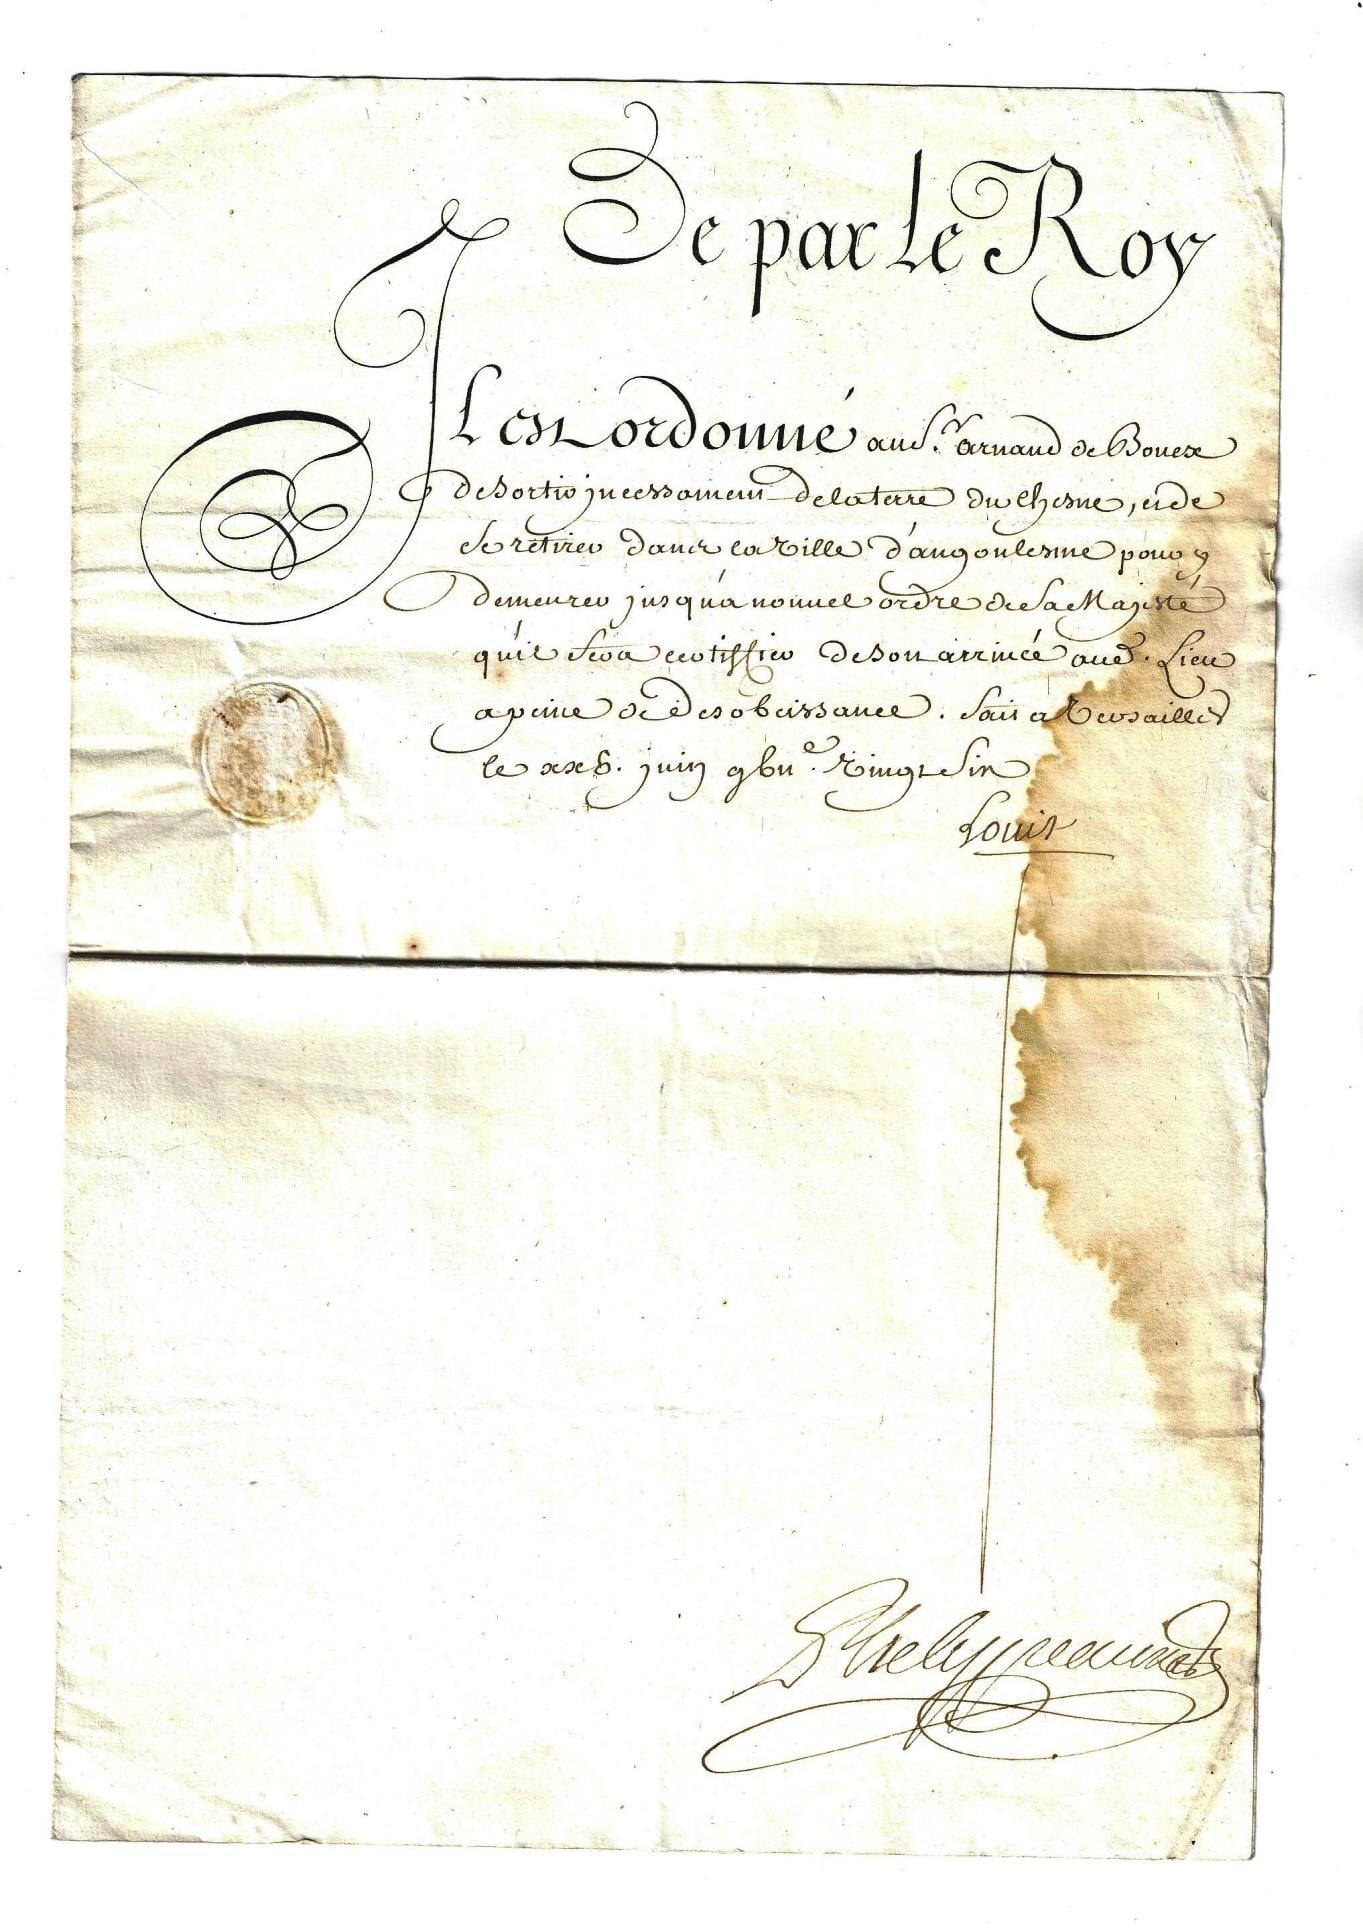 De par le Roy
Il est ordonné au S.r Arnaud de Bouex
de sortir jncessament de la terre du Chesne, et de
se retirer dans la Ville d'angoulesme pour y
demeurer jusqu'a nouvel ordre de Sa Majesté
qu'il sera certiffier de son arrivée aud. Lieu
a peine de desobeissance. Fait a Versailles
le xxv. juin gbii.e Vingt Six
Louis
Phelypeaux